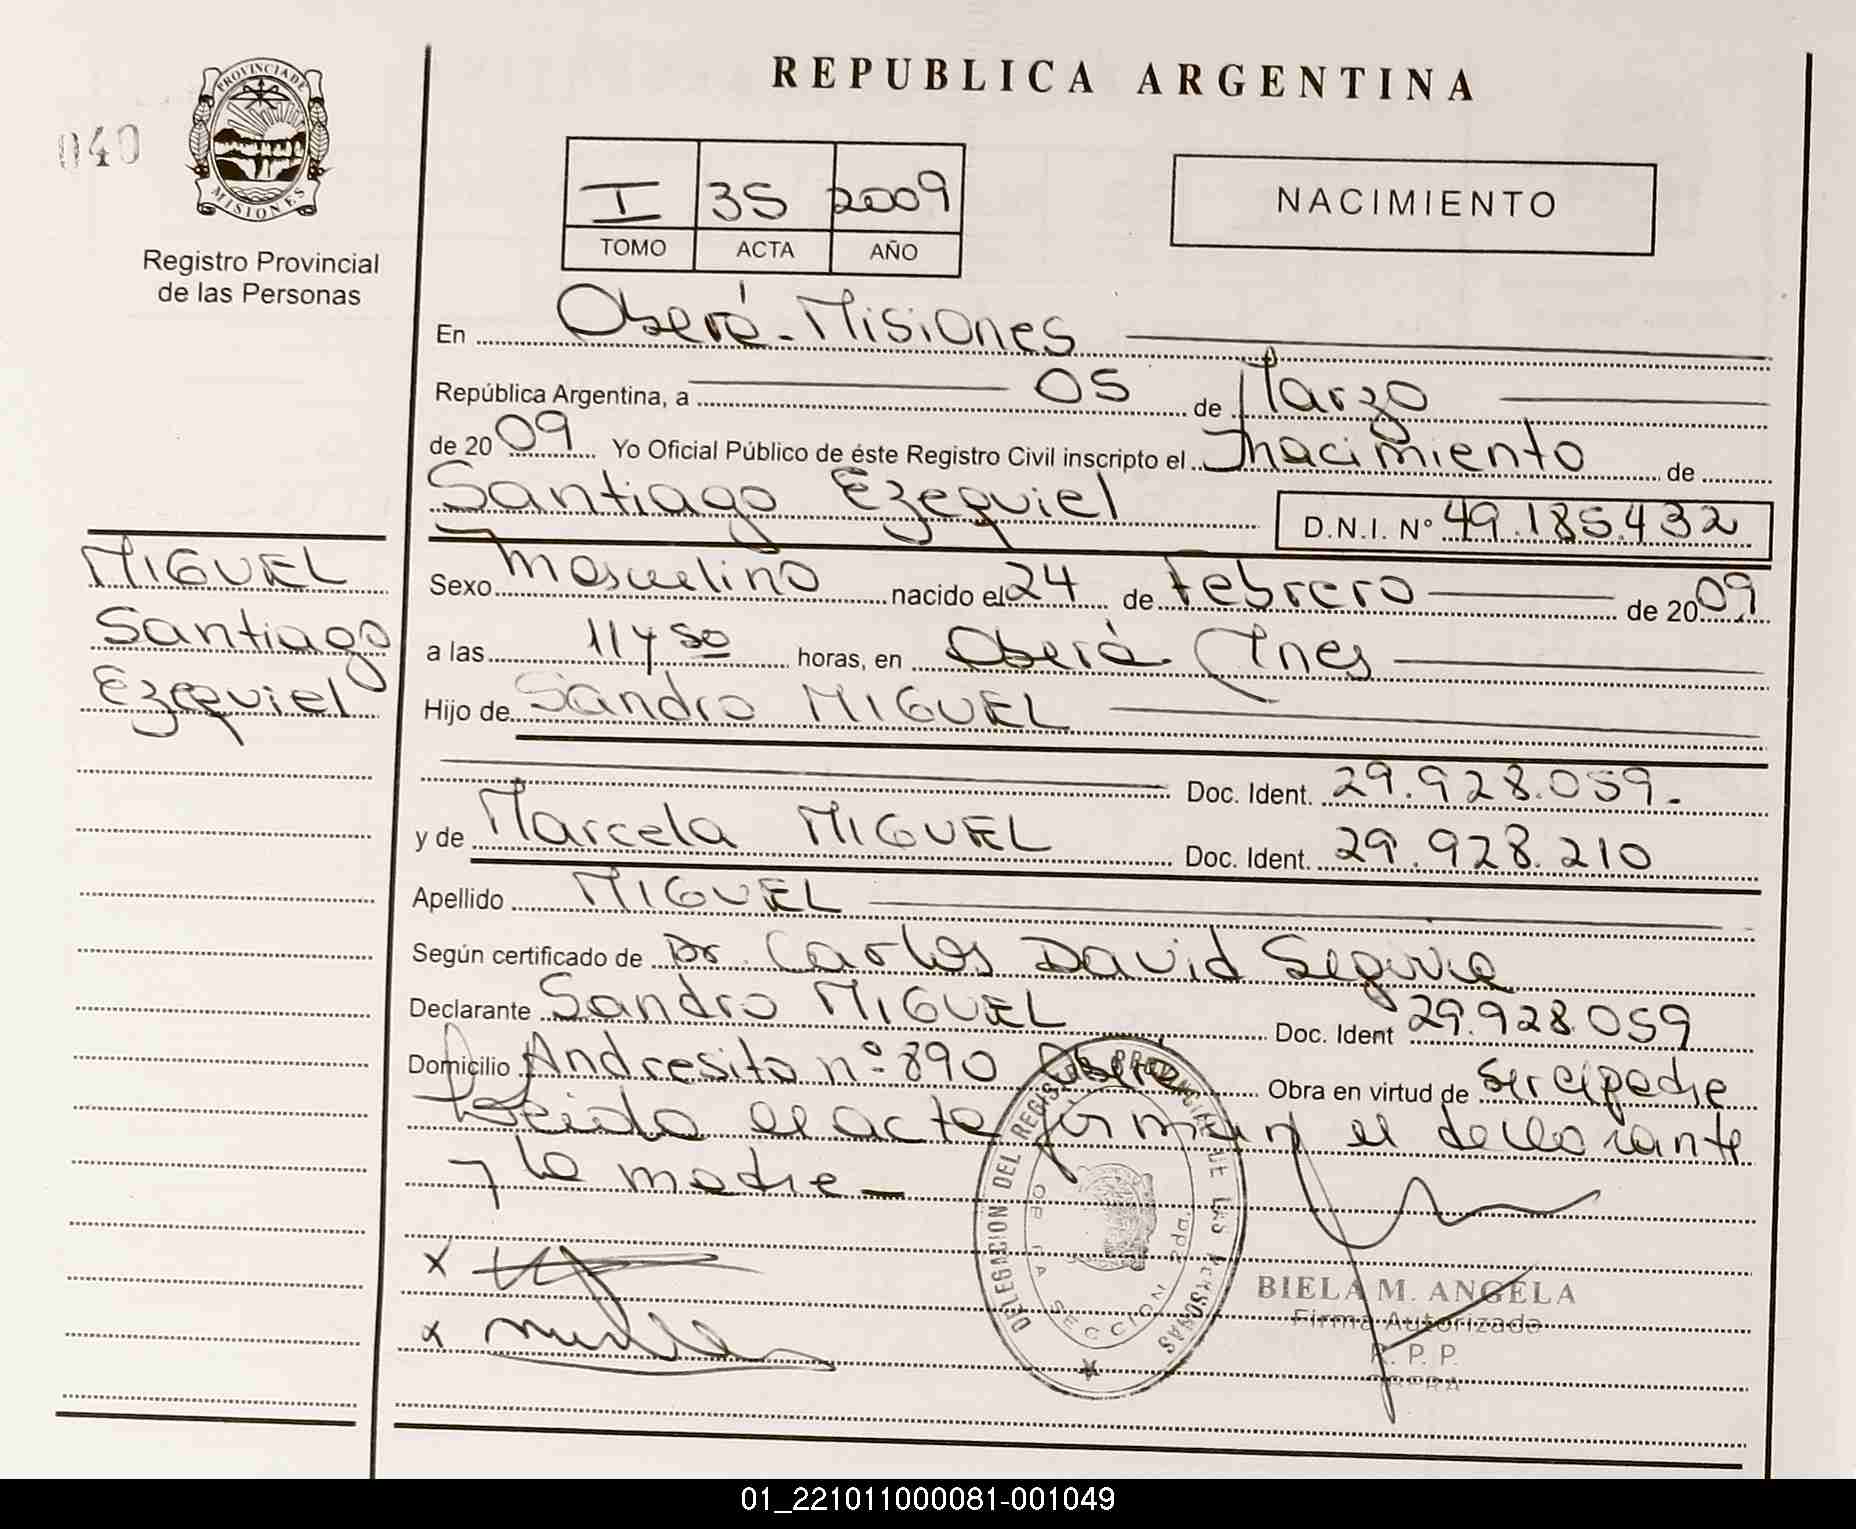 REPUBLICA ARGENTINA
040
PROVINCIA DE
MISIONES
Registro Provincial
de las Personas
I 35 2009
TOMO ACTA AÑO
NACIMIENTO
En Oberá - Misiones
República Argentina, a 05 de Marzo
de 2009 Yo Oficial Público de éste Registro Civil inscripto el nacimiento de
Santiago Ezequiel D.N.I. Nº 49.185.432
MIGUEL
Santiago
Ezequiel
Sexo masculino nacido el 24 de febrero de 2009
a las 11 y 50 horas, en Oberá
Hijo de Sandro MIGUEL
Doc. Ident. 29.928.059.-
y de Marcela MIGUEL Doc. Ident. 29.928.210
Apellido MIGUEL
Según certificado de Dr. Carlos David
Declarante Sandro MIGUEL Doc. Ident 29.928.059
Domicilio Andresito nº 890 Oberá Obra en virtud de
Leida el acta firman el declarante
y la madre -
x
x
DELEGACION DEL REGISTRO PROVINCIAL DE LAS PERSONAS
SECCION
BIELA M. ANGELA
Firma Autorizada
R. P. P.
OBERA
01_221011000081-001049